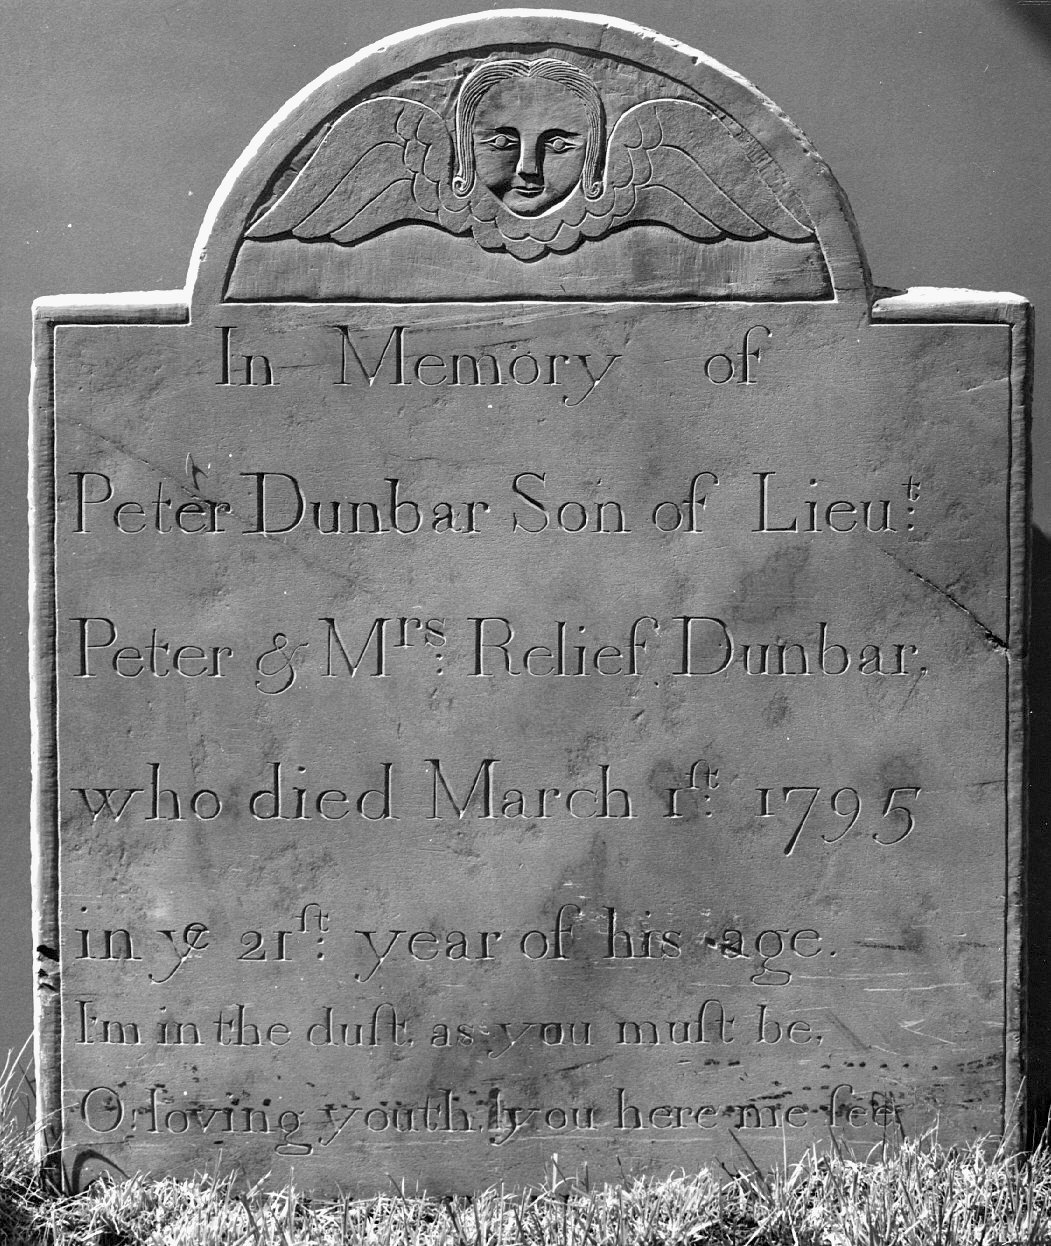 In Memory of
Peter Dunbar Son of Lieu.ᵗ
Peter & M.ʳˢ Relief Dunbar,
who died March 1.ſᵗ 1795
in yͤ 21.ſᵗ year of his age.
I'm in the duſt, as you muſt be,
O! loving youth, you here me see